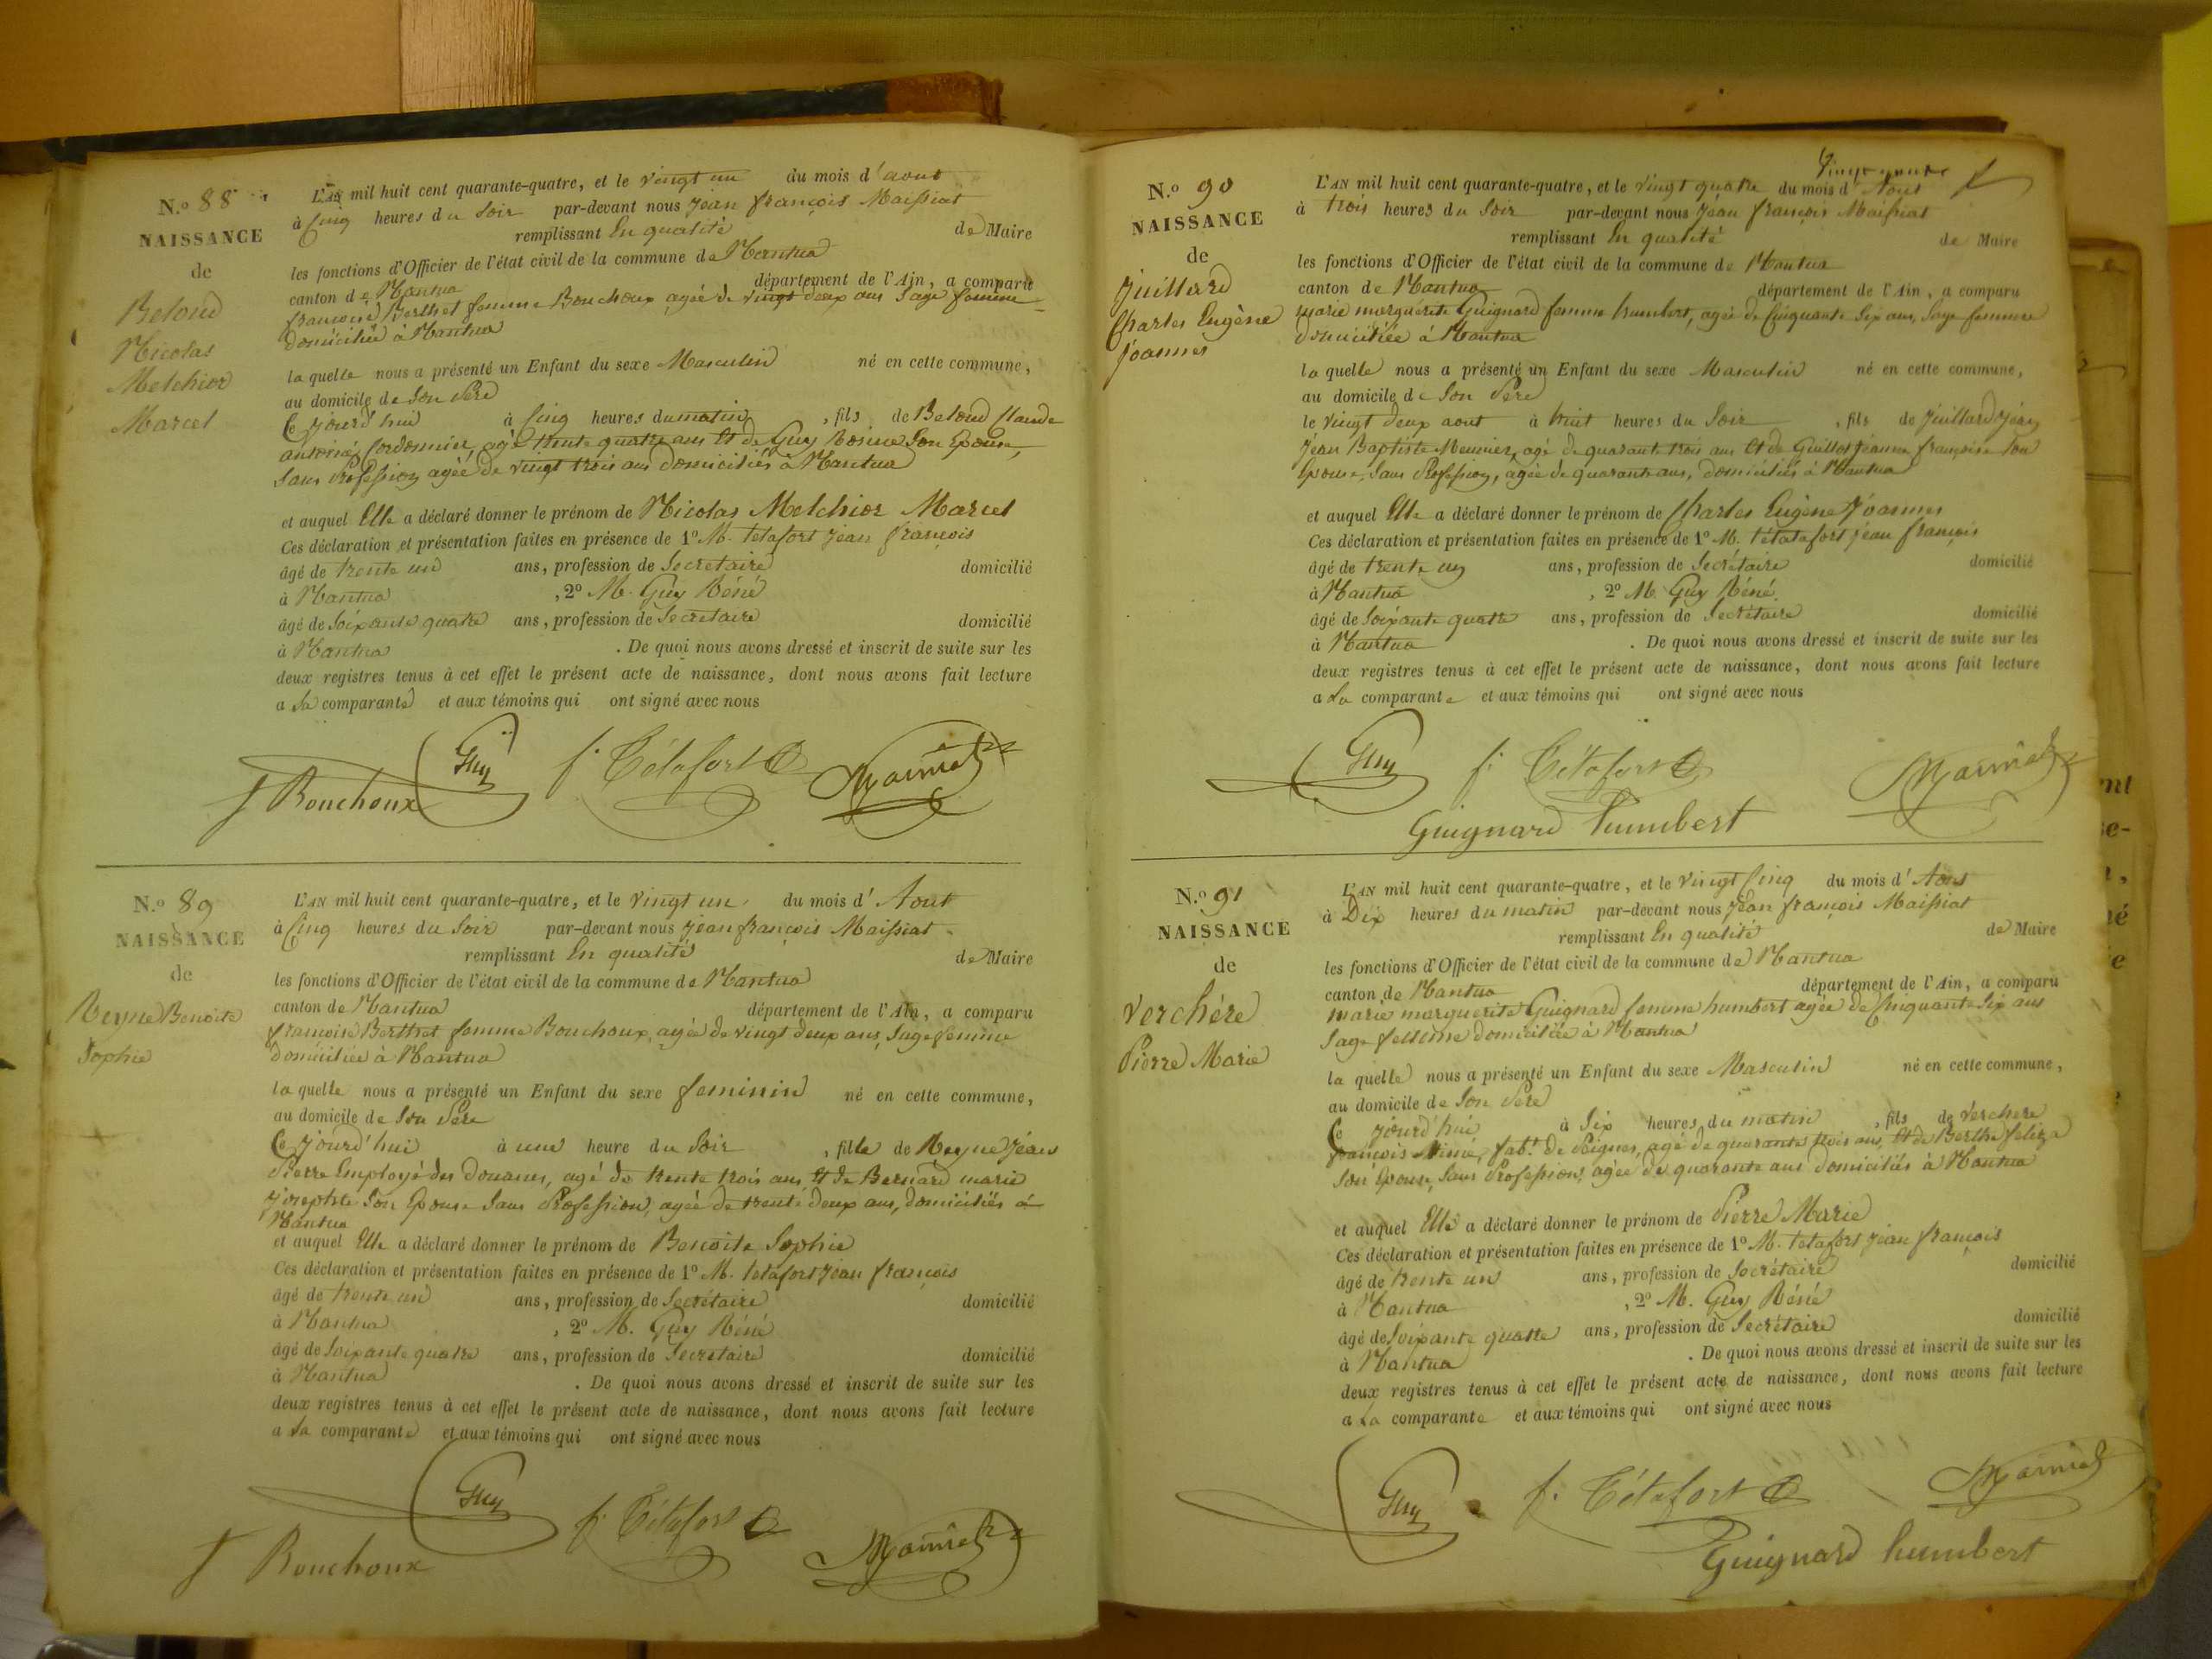 N.o 88
NAISSANCE
de
Belond
Nicolas
Melchior
Marcel
L'AN mil huit cent quarante-quatre, et le vingt un du mois d'aout
à Cinq heures du Soir par-devant nous Jean françois Maissiat
remplissant En qualité de Maire
les fonctions d'Officier de l'état civil de la commune de Nantua
canton de Nantua département de l'Ain, a comparu
françoise Berthet femme Bouchoux agée de vingt deux ans Sage femme
domiciliée à Nantua
laquelle nous a présenté un Enfant du sexe Masculin né en cette commune,
au domicile de Son Père
Ce jourd'hui à Cinq heures du matin, fils de Belond Claude
antoine, Cordonnier, agé trente quatre ans et de Guy Rosine Son Epouse,
Sans Profession agée de vingt trois ans domiciliés à Nantua
et auquel Elle a déclaré donner le prénom de Nicolas Melchior Marcel
Ces déclaration et présentation faites en présence de 1o M. tetafort Jean françois
âgé de trente un ans, profession de Secretaire domicilié
à Nantua, 2o M. Guy Réné
âgé de Soixante quatre ans, profession de Secretaire domicilié
à Nantua. De quoi nous avons dressé et inscrit de suite sur les
deux registres tenus à cet effet le présent acte de naissance, dont nous avons fait lecture
a la comparante et aux témoins qui ont signé avec nous
Guy f. Tétafort Maissiat
f Bouchoux
N.o 89
NAISSANCE
de
Reyne Benoite
Sophie
L'AN mil huit cent quarante-quatre, et le vingt un du mois d'Aout
à Cinq heures du Soir par-devant nous Jean françois Maissiat
remplissant En qualité de Maire
les fonctions d'Officier de l'état civil de la commune de Nantua
canton de Nantua département de l'Ain, a comparu
françoise Berthet femme Bouchoux, agée de vingt deux ans, Sage femme
domiciliée à Nantua
laquelle nous a présenté un Enfant du sexe feminin né en cette commune,
au domicile de Son Père
Ce jourd'hui à une heure du Soir, fille de Reyne Jean
Pierre Employé des douanes, agé de trente trois ans et de Bernard marie
Josephte Son Epouse Sans Profession, agée de trente deux ans, domiciliés à
Nantua
et auquel Elle a déclaré donner le prénom de Benoite Sophie
Ces déclaration et présentation faites en présence de 1o M. tetafort Jean françois
âgé de trente un ans, profession de Secrétaire domicilié
à Nantua, 2o M. Guy Réné
âgé de Soixante quatre ans, profession de Secretaire domicilié
à Nantua. De quoi nous avons dressé et inscrit de suite sur les
deux registres tenus à cet effet le présent acte de naissance, dont nous avons fait lecture
a la comparante et aux témoins qui ont signé avec nous
Guy f. Tétafort Maissiat
f Bouchoux
N.o 90
NAISSANCE
de
Juillard
Charles Eugène
Joannes
L'AN mil huit cent quarante-quatre, et le vingt quatre du mois d'Aout
à trois heures du Soir par-devant nous Jean françois Maissiat
remplissant En qualité de Maire
les fonctions d'Officier de l'état civil de la commune de Nantua
canton de Nantua département de l'Ain, a comparu
Marie marguerite Guignard femme humbert, agée de Cinquante Six ans, Sage femme
domiciliée à Nantua
laquelle nous a présenté un Enfant du sexe Masculin né en cette commune,
au domicile de Son Père
le vingt deux aout à huit heures du Soir, fils de Juillard Jean
Jean Baptiste Meunier, agé de quarante trois ans et de Guillot Jeanne françoise Son
Epouse, Sans Profession, agée de quarante ans, domiciliés à Nantua
et auquel Elle a déclaré donner le prénom de Charles Eugène Joannes
Ces déclaration et présentation faites en présence de 1o M. tétatafort jean françois
âgé de trente un ans, profession de Secrétaire domicilié
à Nantua, 2o M. Guy Réné
âgé de Soixante quatre ans, profession de Secretaire domicilié
à Nantua. De quoi nous avons dressé et inscrit de suite sur les
deux registres tenus à cet effet le présent acte de naissance, dont nous avons fait lecture
a la comparante et aux témoins qui ont signé avec nous
Guy f. Tétafort Maissiat
Guignard humbert
N.o 91
NAISSANCE
de
Verchère
Pierre Marie
L'AN mil huit cent quarante-quatre, et le vingt Cinq du mois d'Aout
à Dix heures du matin par-devant nous Jean françois Maissiat
remplissant En qualité de Maire
les fonctions d'Officier de l'état civil de la commune de Nantua
canton de Nantua département de l'Ain, a comparu
Marie marguerite Guignard femme humbert agée de Cinquante Six ans
Sage femme domiciliée à Nantua
laquelle nous a présenté un Enfant du sexe Masculin né en cette commune,
au domicile de Son Père
Ce jourd'hui à Six heures du matin, fils de Verchere
françois Aimé, fabt. de Peignes, agé de quarante trois ans, et de Berthe
Son Epouse, Sans Profession, agée de quarante ans domiciliés à Nantua
et auquel Elle a déclaré donner le prénom de Pierre Marie
Ces déclaration et présentation faites en présence de 1o M. tetafort Jean françois
âgé de trente un ans, profession de Secrétaire domicilié
à Nantua, 2o M. Guy Réné
âgé de Soixante quatre ans, profession de Secrétaire domicilié
à Nantua. De quoi nous avons dressé et inscrit de suite sur les
deux registres tenus à cet effet le présent acte de naissance, dont nous avons fait lecture
a la comparante et aux témoins qui ont signé avec nous
Guy f. Tétafort Maissiat
Guignard humbert